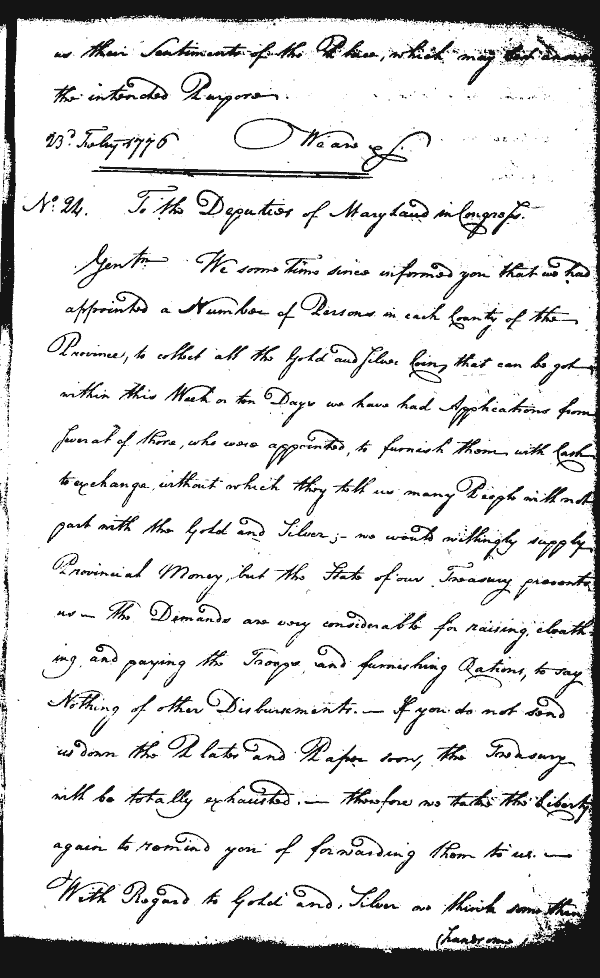 us their Sentiments of the Place, which may best answer
the intended Purpose.
23d. Feby. 1776 We are &c.
No. 24. To the Deputies of Maryland in Congress.
Gentn. We some Time since informed you that we had
appointed a Number of Persons in each County of the
Province, to collect all the Gold and Silver Coin, that can be got
within this Week or ten Days we have had Applications from
several of those, who were appointed, to furnish them with Cash
to exchange, without which they tell us many People will not
part with the Gold and Silver; - we would willingly supply
Provincial Money, but the State of our Treasury prevents
us — the Demands are very considerable for raising, cloath-
ing, and paying the Troops, and furnishing Rations, to say
Nothing of other Disbursements. — If you do not send
us down the Plates and Paper soon, the Treasury
will be totally exhausted. — therefore we take the Liberty
again to remind you of forwarding them to us. —
With Regard to Gold and Silver we think some
handsome